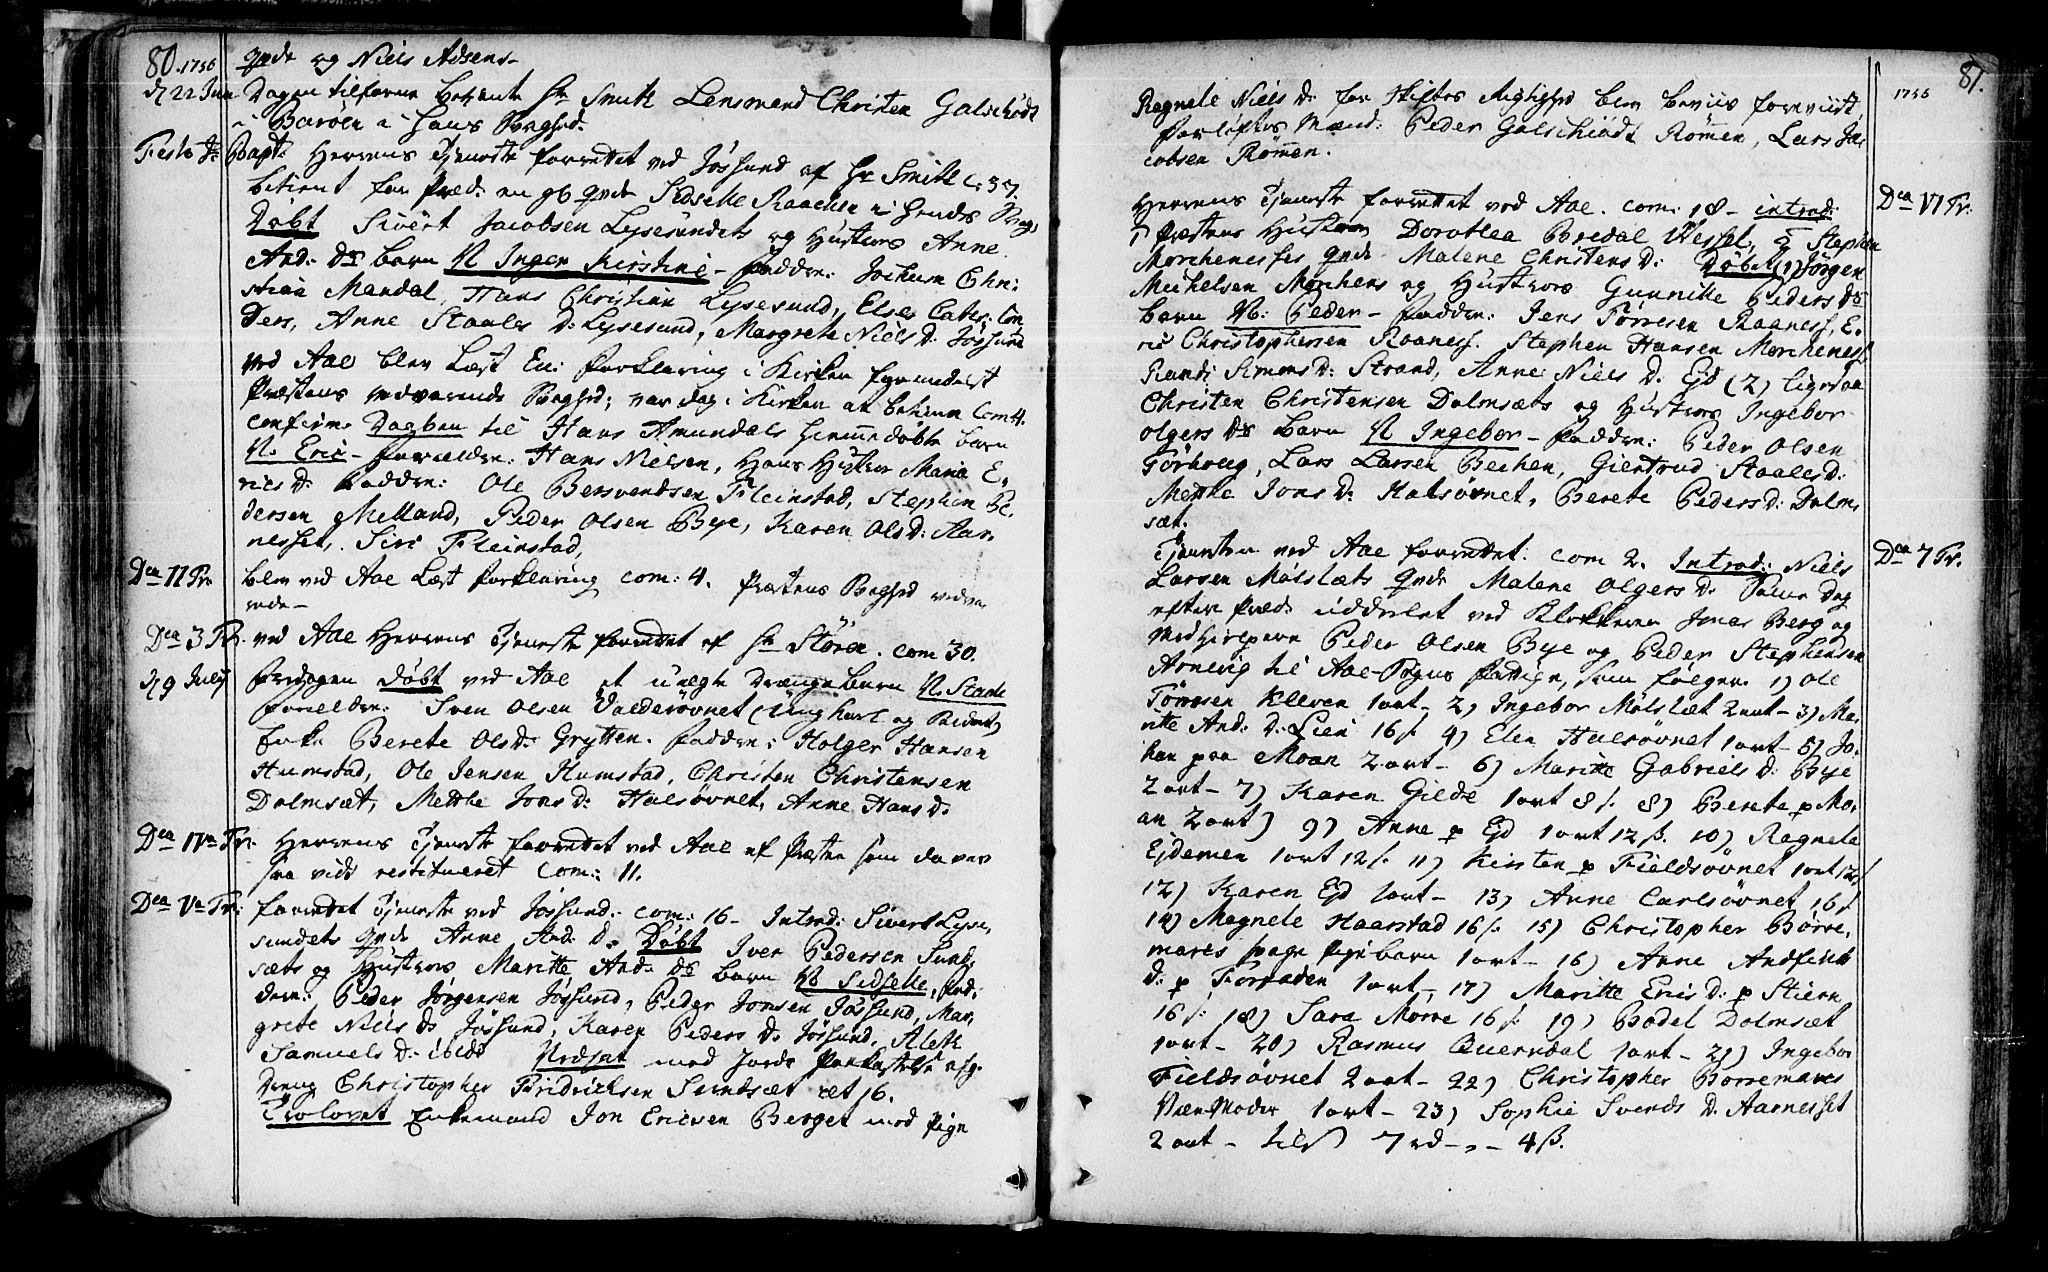 80. 1756
qvde og Niels Adsens-
d 22 Jun Dagen tilforne betiente Hr Smith Lensmand Christen Galschiødt
i Barøen i hans Svaghed.
Festo J: Bapt: Herrens Tjeneste forrettet ved Jøssund af Hr Smith C: 37.
betient for Præd: en gl qvde Sidselle Raachen i hendes Svag:
Døbt Sivert Jacobsen Lysesundets og Hustrues Anne
And: Ds barn N Inger Kirstine - Faddere: Jochum Chri
stian Mandal, Hans Christian Lysesund, Elses Cathr: Con
ders, Anne Staales D: Lysesund, Margrete Niels D: Jøssund
Ved Aae blev Læst En: Forklaring i Kirken formedelst
Præstens vedvarende Svaghed; var dog i Kirken at betiene Com 4.
confirm: Daaben til Hans Amundals hiemmedøbte barn
N. Eric - Forældre: Hans Nielsen, Hans Hustrue Maria E,
rics D: Faddere: Ole Bersvendsen Fleinstad, Stephen Pe,
dersen Melland, Peder Olsen Bye, Karen Ols D: Aar,
nesset, Siri Fleinstad,
Dca II Tr: blev ved Aae Læst Forklaring com: 4. Præstens Svaghed vedva
rede-
Dca 3 Tr. ved Aae Herrens Tjeneste forrettet af Hr Støren. com 30.
d 9 July Fredagen Døbt ved Aae et uægte Drænge barn N. Staale
Forældre: Sven Olsen Valderøvnet (Ungkarl og
Enke Berete Ols D: Grytten. Faddere: Holger Hansen
Humstad, Ole Jensen Humstad, Christen Christensen
Dolmsæt, Metthe Jons D: Halsøvnet, Anne Hans D.
Dca IVta Tr: Herrens Tjeneste forrettet ved Aae af Præsten som da var
saa vidt restitueret Com: 11.
Dca Vta Tr: forrettet Tjeneste ved Jøssund: com: 16 - Introd: Sivert Lyse,
sundets qvde Anne And: D. Døbt Iver Pedersen Sund,
sæts og Hustrues Maritte And: Ds barn N Sidselle, Fad,
dere: Peder Jørgensen Jøssund, Peder Jonsen Jøssund, Mar,
grete Niels Ds Jøssund, Karen Peders D: Jøssund, Aleth
Samuels D: ibidt Nedsat med Jords Paakastelse afg:
Dreng Christopher Fridricksen Sundsæt æt 16.
Trolovet Enkemand Jon Ericsen Berget med Pige
81.
1756
Ragnele Niels D: for Skiftes Rigtighed blev beviis foreviist,
Forløftes Mænd: Peder Galschiødt Rømen, Lars Ja,
cobsen Rømen.
Dca VI Tr: Herrens Tjeneste forrettet ved Aae. com: 18 - introd:
1 Præstens Hustrue Dorothea Bredal Wessel, 2 Stephen
Morchenesses qvde Malene Christens D: Døbt (1) Jørgen
Michelsen Morchens og Hustrues Gunnille Peders Ds
barn N: Peder - Faddere: Jens Tørresen Raaness, E,
ric Christophersen Raaness. Stephen Hansen Morcheness
Randi Simens D: Strand, Anne Niels D. Ejd (2) ligesaa
Christen Christensen Dolmsæts og Hustrues Ingebor
Olgers Ds barn N Ingebor - Faddere: Peder Olsen
Tørhoug, Lars Larsen Bechen, Giertrud Staales D:
Mette Jons D: Halsøvnet, Berete Peders D: Dolm,
sæt.
Dca 7 Tr. Tjenesten ved Aae forrettet: com 2. Introd: Niels
Larsen Mølslæts qvde Malene Olgers D: Samme Dag
efter Præd: uddeelet ved Klokkeren Jonas Berg og
Medhielpere Peder Olsen Bye og Peder Stephensen
Arnevig til Aae-Sogns Fattige, som følger. 1) Ole
Tørresen Kleven 1 ort - 2) Ingebor Mølslæt 2 ort - 3) Ma,
ritte And: D: Lien 16 ß. 4) Elen Halsøvnet 1 ort - 5) Jo,
han paa Moan 2 ort - 6) Maritte Gabriels D: Bye
2 ort - 7) Karen Gilde 1 ort 8 ß. 8) Berete p Mo,
an 2 ort) 9) Anne p Ejd 1 ort 12 ß. 10) Ragnele
Ejdemen 1 ort 12 ß. 11) Kirsten p Fieldsøvnet 1 ort 12 ß
12) Karen Ejd 1 ort - 13) Anne Carlsøvnet 16 ß
14) Magnele Haarstad 16 ß. 15) Christopher Børre,
mares svage Pigebarn 1 ort - 16) Anne Andfind
D: p Forraden 1 ort, 17) Maritte Erics D: p Stiern
16 ß. 18) Sara Morre 16 ß. 19) Bodel Dolmsæt
1 ort - 20) Rasmus Querndal 1 ort - 21) Ingebor
Fieldsøvnet 2 ort - 22) Christopher Borremares
Værmoder 1 ort - 23) Sophie Svends D. Aarnesset
2 ort - til 7 rd - , - 4 ß.